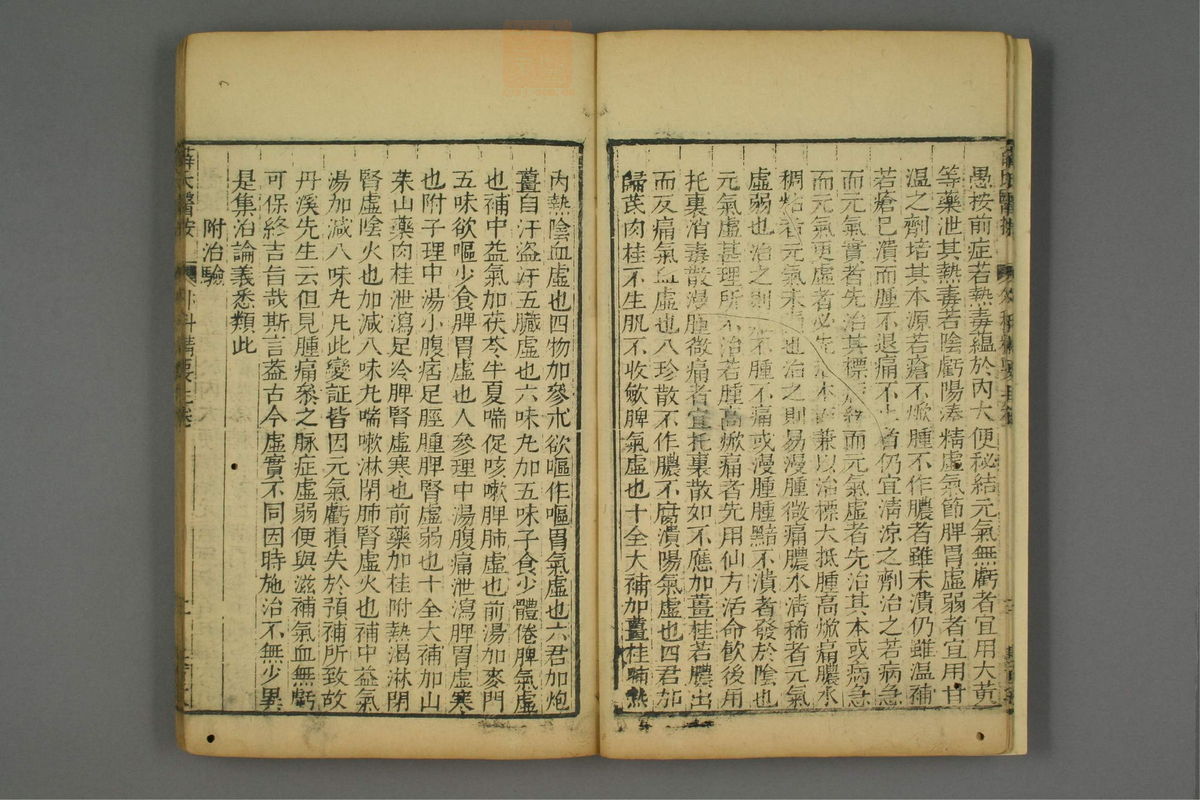 愚按前症若熱毒蘊於內大便秘結元氣無虧者宜用大黃
等藥泄其熱毒若陰虧陽湊精虛氣節脾胃虛弱者宜用甘
溫之劑培其本源若瘡不焮腫不作膿者雖未潰仍雖溫補
若瘡已潰而腫不退痛不止者仍宜清涼之劑治之若病急
而元氣實者先治其標病緩而元氣虛者先治其本或病急
而元氣更虛者必先治本而兼以治標大抵腫高焮痛膿水
稠粘者元氣未損也治之則易漫腫微痛膿水清稀者元氣
虛弱也治之則難不腫不痛或漫腫腫黯不潰者發於陰也
元氣虛甚理所不治若腫高焮痛者先用仙方活命飲後用
托裏消毒散漫腫微痛者宜托裏散如不應加薑桂若膿出
而反痛氣血虛也八珍散不作膿不腐潰陽氣虛也四君加
歸芪肉桂不生肌不收斂脾氣虛也十全大補加薑桂晡熱
內熱陰血虛也四物加參朮欲嘔作嘔胃氣虛也六君加炮
薑自汗盜汗五臟虛也六味丸加五味子食少體倦脾氣虛
也補中益氣加茯苓半夏喘促咳嗽脾肺虛也前湯加麥門
五味欲嘔少食脾胃虛也人參理中湯腹痛泄瀉脾胃虛寒
也附子理中湯小腹痞足脛腫脾腎虛弱也十全大補加山
茱山藥肉桂泄瀉足冷脾腎虛寒也前藥加桂附熱渴淋閉
腎虛陰火也加減八味丸喘嗽淋閉肺腎虛火也補中益氣
湯加減八味丸凡此變証皆因元氣虧損失於預補所致故
丹溪先生云但見腫痛參之脉症虛弱便與滋補氣血無虧
可保終吉旨哉斯言葢古今虛實不同因時施治不無少異
是集治論義悉類此
附治驗
薛氏醫按
外科精要上卷